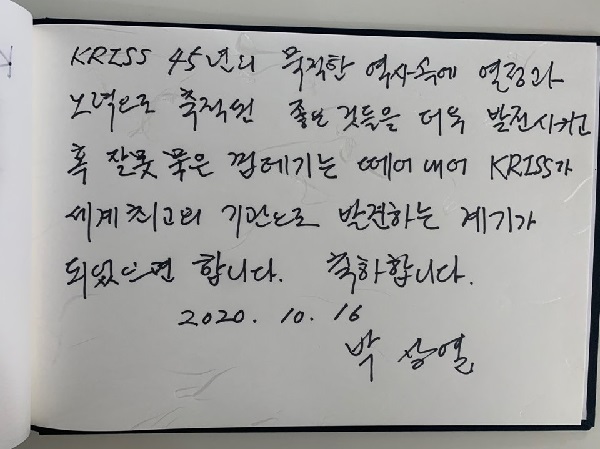 KRISS 45년의 묵직한 역사속에 열정과
노력으로 축적된 좋은 것들을 더욱 발전시키고
혹 잘못 묵은 껍데기는 떼어내어 KRISS가
세계최고의 기관으로 발견하는 계기가
되었으면 합니다. 축하합니다.
2020. 10. 16
박상열